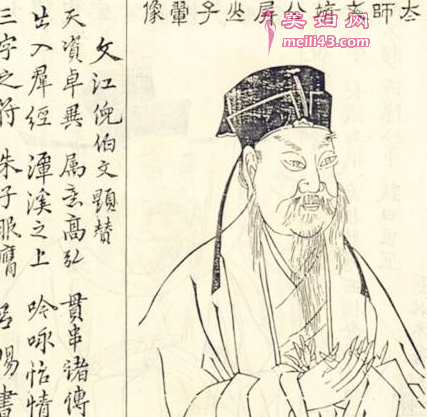 太師文靖公屏山子翬像
文江倪伯文題賛
天資卓異 属意高弘 貫串諸傳
出入羣經 潭溪之上 吟咏恬情
三字之符 朱子服膺
美如网
meili43.com